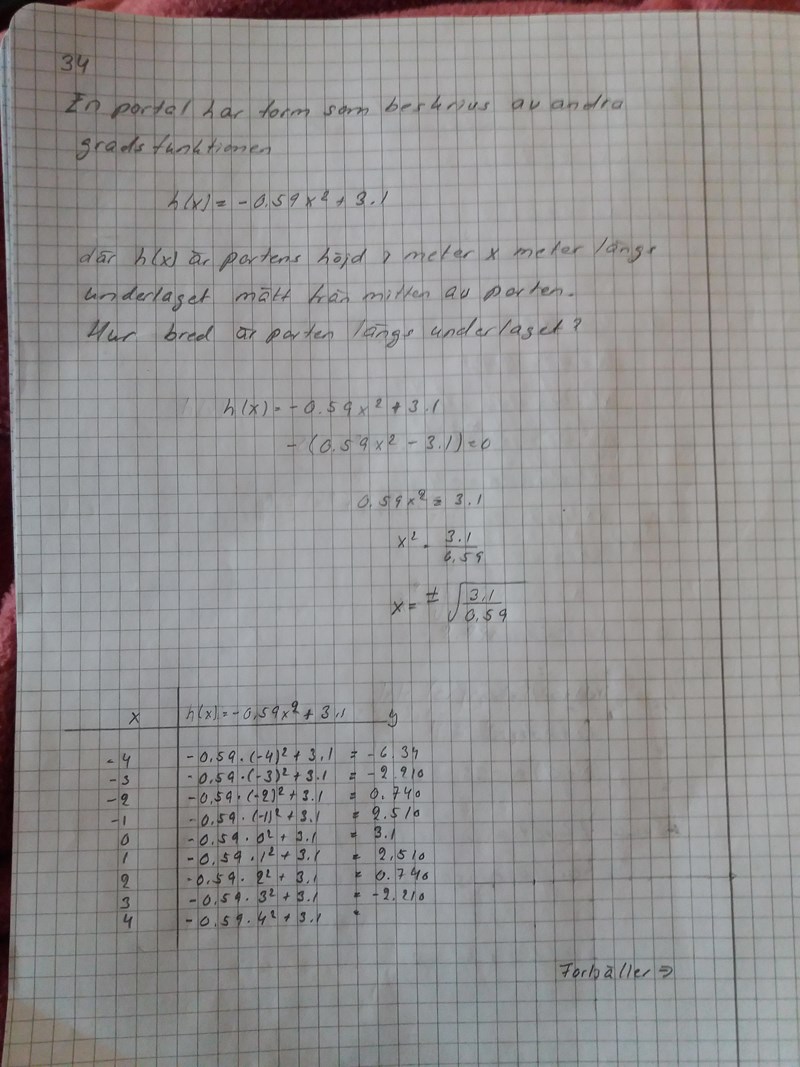 34
En portal har form som beskrivs av andra
grads funktionen
h(x) = -0.59x² + 3.1
där h(x) är portens höjd i meter x meter längs
underlaget mätt från mitten av porten.
Hur bred är porten längs underlaget?
h(x) = -0.59x² + 3.1
-(0.59x² - 3.1) = 0
0.59x² = 3.1
x² = 3.1/0.59
x = ± √(3.1/0.59)
x h(x) = -0.59x² + 3.1 y
-4 -0.59·(-4)² + 3.1 = -6.34
-3 -0.59·(-3)² + 3.1 = -2.210
-2 -0.59·(-2)² + 3.1 = 0.740
-1 -0.59·(-1)² + 3.1 = 2.510
0 -0.59·0² + 3.1 = 3.1
1 -0.59·1² + 3.1 = 2.510
2 -0.59·2² + 3.1 = 0.740
3 -0.59·3² + 3.1 = -2.210
4 -0.59·4² + 3.1 =